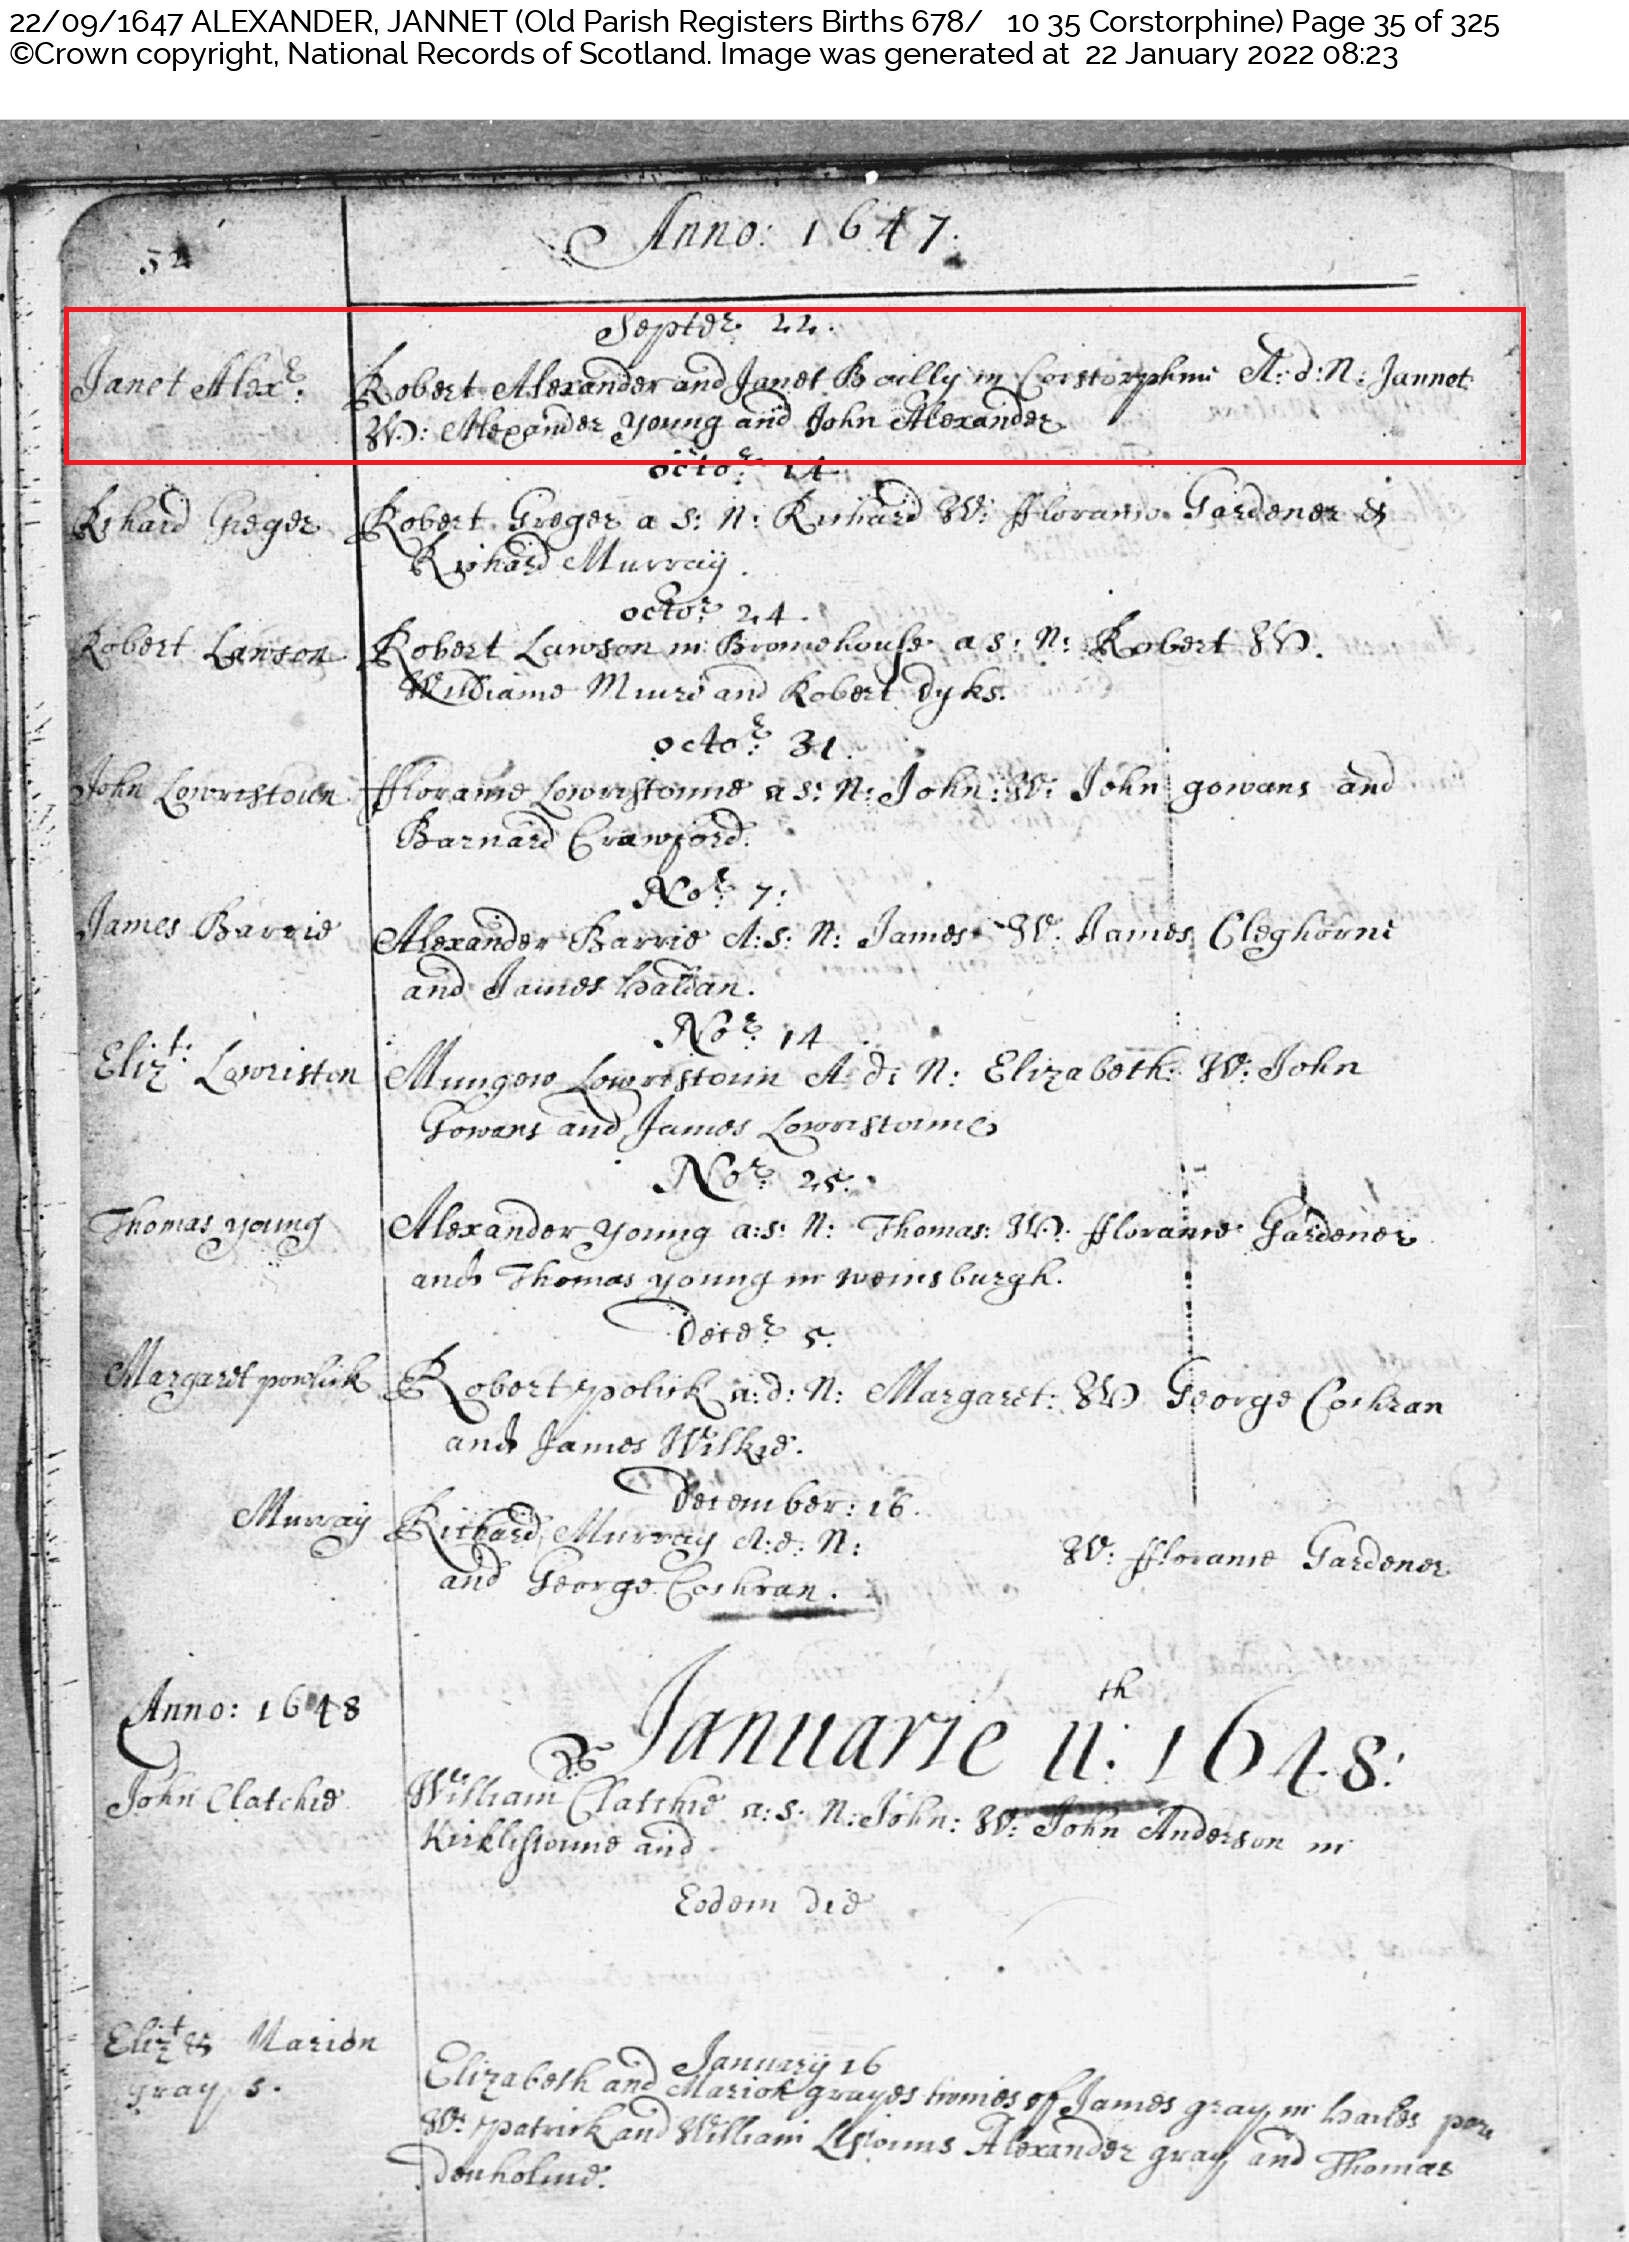 22/09/1647 ALEXANDER, JANNET (Old Parish Registers Births 678/ 10 35 Corstorphine) Page 35 of 325
©Crown copyright, National Records of Scotland. Image was generated at 22 January 2022 08:23
52
Anno: 1647.
Septer. 22.
Janet Alexr.
Robert Alexander and Janet Bailly in Corstorphine A: d: N: Jannet
W: Alexander Young and John Alexander
octor. 14
Richard Greger
Robert Greger a s: N: Richard W: fflorame Gardener &
Richard Murray.
octor. 24.
Robert Lawson
Robert Lawson in Bromehouse a s: N: Robert W.
Williame Muire and Robert dyks.
octor. 31.
John Lowristoun
fflorame Lowristoune a s: N: John: W: John gowans and
Barnard Crawford.
Nor. 7:
James Barrie
Alexander Barrie A: s: N: James W: James Cleghorne
and James haldan.
Nor. 14
Elizt: Lowriston
Mungow Lowristoun A d: N: Elizabeth: W: John
Gowans and James Lowristoune
Nor. 25.
Thomas young
Alexander Young a: s: N: Thomas: W: fflorame Gardener
and Thomas young in
Decer. 5.
Margaret powlick
Robert polick a: d: N: Margaret: W George Cochran
and James Wilkie.
December: 16.
Murray
Richard Murray A: d: N: W: fflorame Gardener
and George Cochran.
Anno: 1648
Januarie 11th: 1648:
John Clatchie
William Clatchie a: s: N: John: W: John Anderson in
Kirklistoune and
Eodem die
January 16
Elizt & Marion
gray s.
Elizabeth and Marion grayes twines of James gray in hailes
W: patrick and William Alexander gray and Thomas
Denholme.